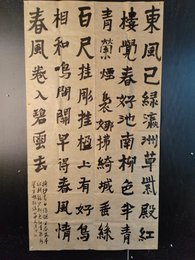 東風已綠瀛洲草紫殿紅
樓覺春好池南柳色半青
青縈煙裊娜拂綺城垂絲
百尺挂彫楹上有好鳥
相和鳴間關早得春風情
春風卷入碧雲去